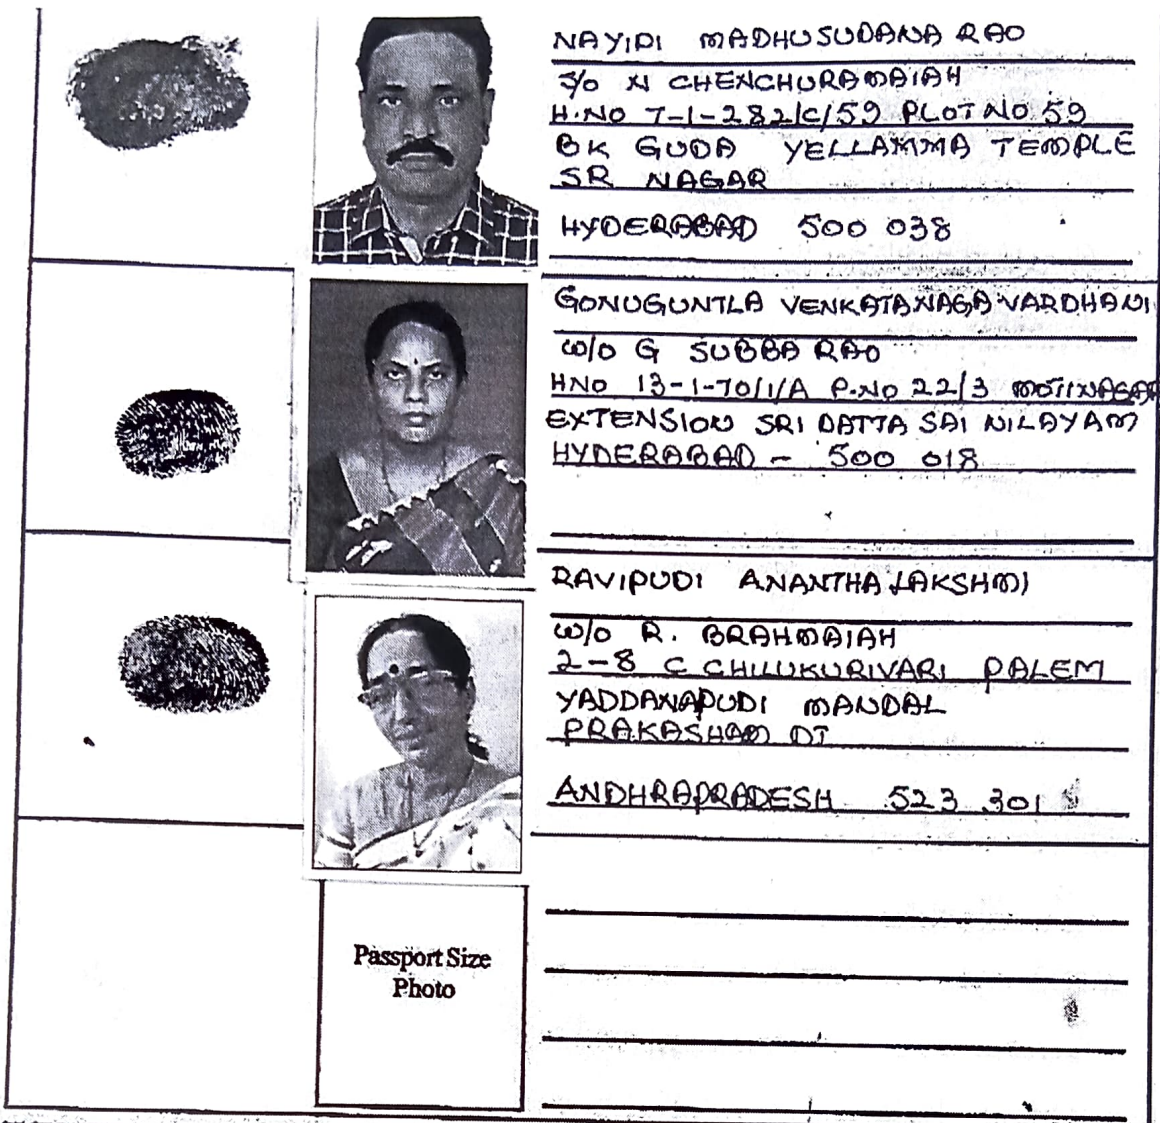 NAYIDI MADHUSUDANA RAO
S/O N CHENCHURAMAIAH
H.NO 7-1-282/C/59 PLOT NO 59
BK GUDA YELLAMMA TEMPLE
SR NAGAR
HYDERABAD 500 038
GONUGUNTLA VENKATANAGA VARDHANI
W/O G SUBBA RAO
HNO 13-1-70/1/A P.NO 22/3 MOTINAGAR
EXTENSION SRI DATTA SAI NILAYAM
HYDERABAD - 500 018
RAVIPUDI ANANTHA LAKSHMI
W/O R. BRAHMAIAH
2-8 C CHILUKURIVARI PALEM
YADDANAPUDI MANDAL
PRAKASHAM DT
ANDHRAPRADESH 523 301
Passport Size
Photo